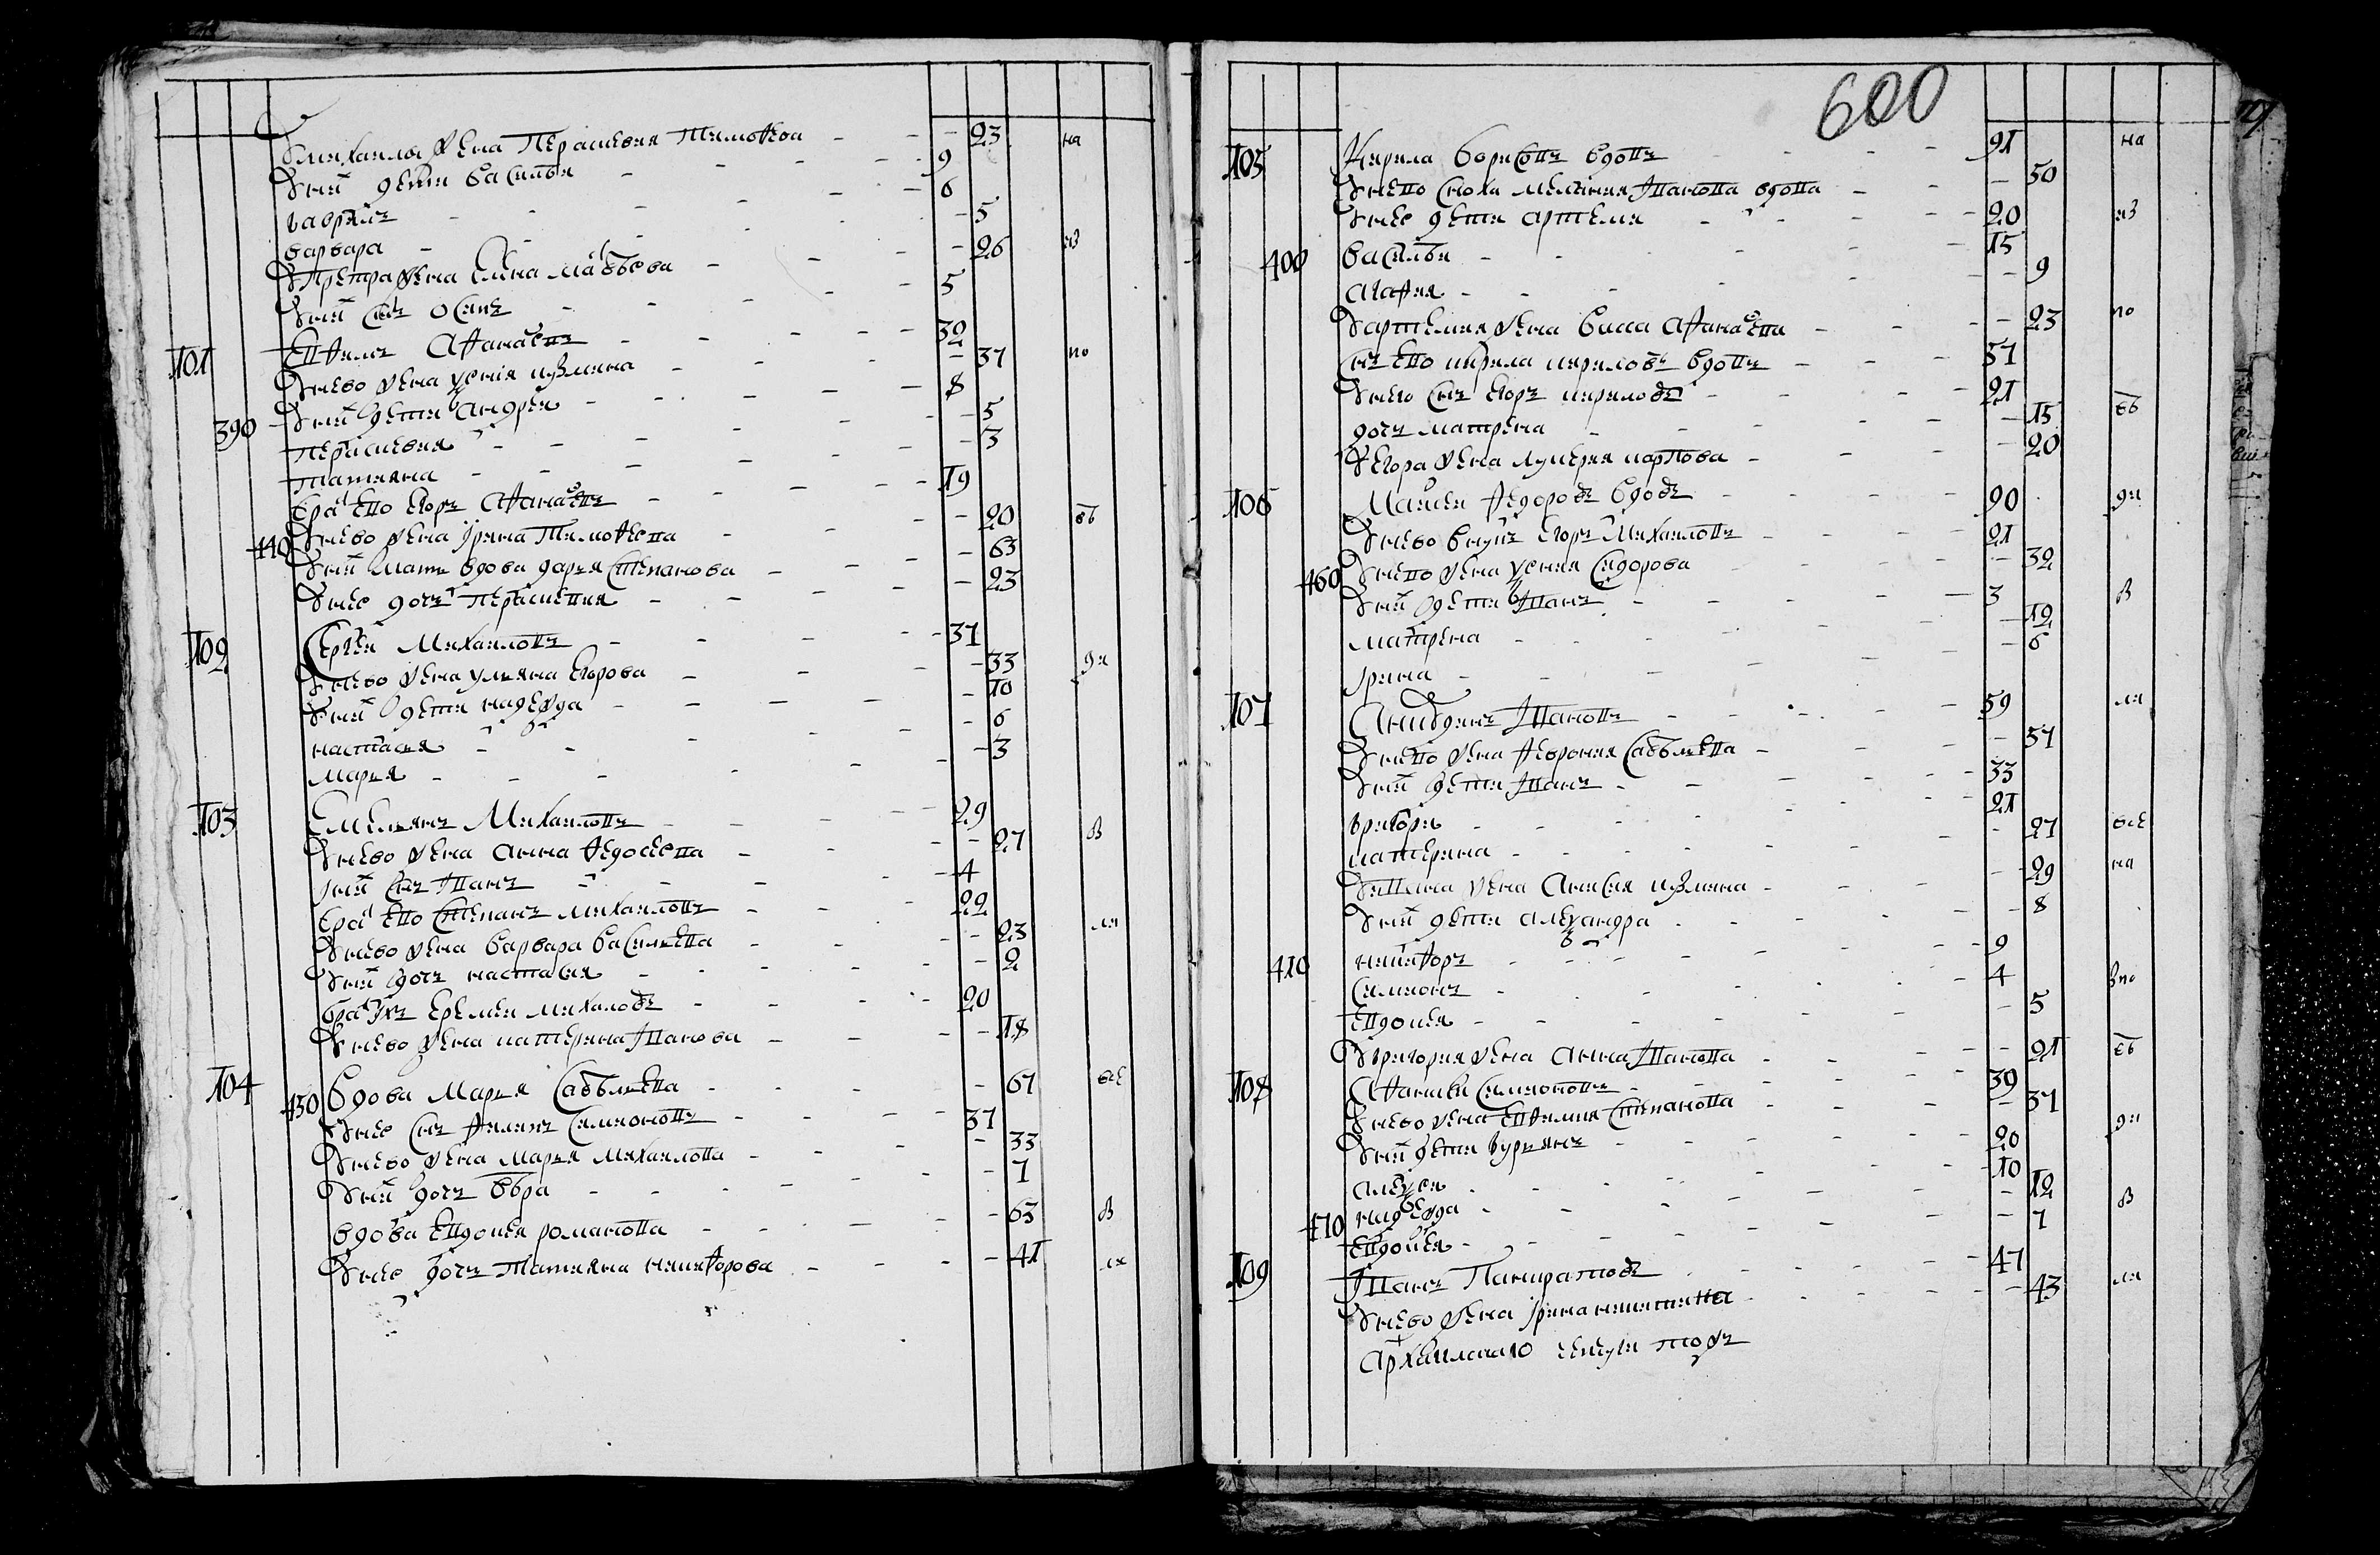 У михаилы жена Парасковия Тимофеева 23 на
У них дети Василеи 9
Гаврилъ 6
Варвара 5
У Петра жена Елена Матвеева 26 из
У них снъ Осипъ 5
101 Евфимъ Афанасевъ 32
У нево жена Ксения кузмина 37 по
390 У них дети Андреи 8
Парасковия 5
Татияна 3
Братъ ево Егоръ Афанасевъ 19
440 У нево жена Ирина Тимофеева 20 въ
У них мать вдова дарья Степанова 63
У нее дочь Парасковия 23
102 Сергеи Михаиловъ 37
У нево жена ульяна Егорова 33 дн
У них дети надежда 10
настасья 6
Марья 3
103 Емильянъ Михаиловъ 29
У нево жена анна федосеева 27 в
У них снъ Иванъ 4
Братъ ево Степанъ михаиловъ 22
У нево жена варвара василиева 23 ля
У них дочь настасия 2
Братъ ихъ Еремеи михаловъ 20
У нево жена катерина Иванова 18
104 450 Вдова Марья Савельева 67 все
У нее снъ филипъ Симионовъ 37
У нево жена марья михаилова 33
У них дочь вера 7
вдова Евдокея романова 63 в
У нее дочь Татияна никифорова 41 ля
600
105 Кирила Борисовъ вдовъ 91 на
У нево сноха мелания Иванова вдова 50
У нее дети артемеи 20 из
400 Василеи 15
агафия 9
У артемия жена васса афанасева 23 по
снъ ево кирила кириловъ вдовъ 57
У него снъ Егоръ кириловъ 21
дочь матрена 15 въ
У Егора жена лукерия карпова 20
106 Маисеи федоровъ вдовъ 90 дн
У нево внукъ Егоръ Михаиловъ 21
460 У нево жена ксения Сидорова 32
У них дети Иванъ 3 в
матрена 12
Ирина 6
107 Аникудинъ Ивановъ 59 ля
У нево жена феврония Савельева 57
У них дети Иванъ 33
григореи 21
катерина 27 все
У Ивана жена Анисия кузмина 29 на
У них дети александра 8
410 никифоръ 9
Симионъ 4 зпо
Евдокея 5
У григория жена анна Иванова 21 въ
108 Афанасеи Симионовъ 39
У нево жена Евфимия Степанова 37
У них дети гурьянъ 20 дн
алексеи 10
470 надежда 12 в
Евдокея 7
109 Иванъ Панкратовъ 47
У нево жена Ирина никитина 43 ля